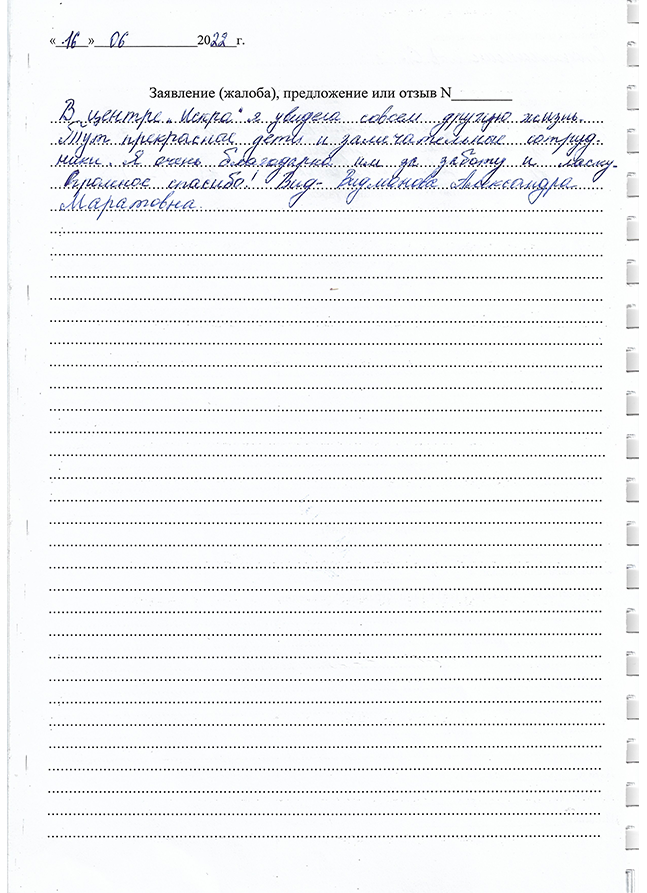 «16» 06 2022 г.
Заявление (жалоба), предложение или отзыв N
В центре „Искра“ я увидела совсем другую жизнь.
Тут прекрасные дети и замечательные сотруд-
ники. Я очень благодарна им за заботу и ласку.
Огромное спасибо! Вид- Видманова Александра
Маратовна.